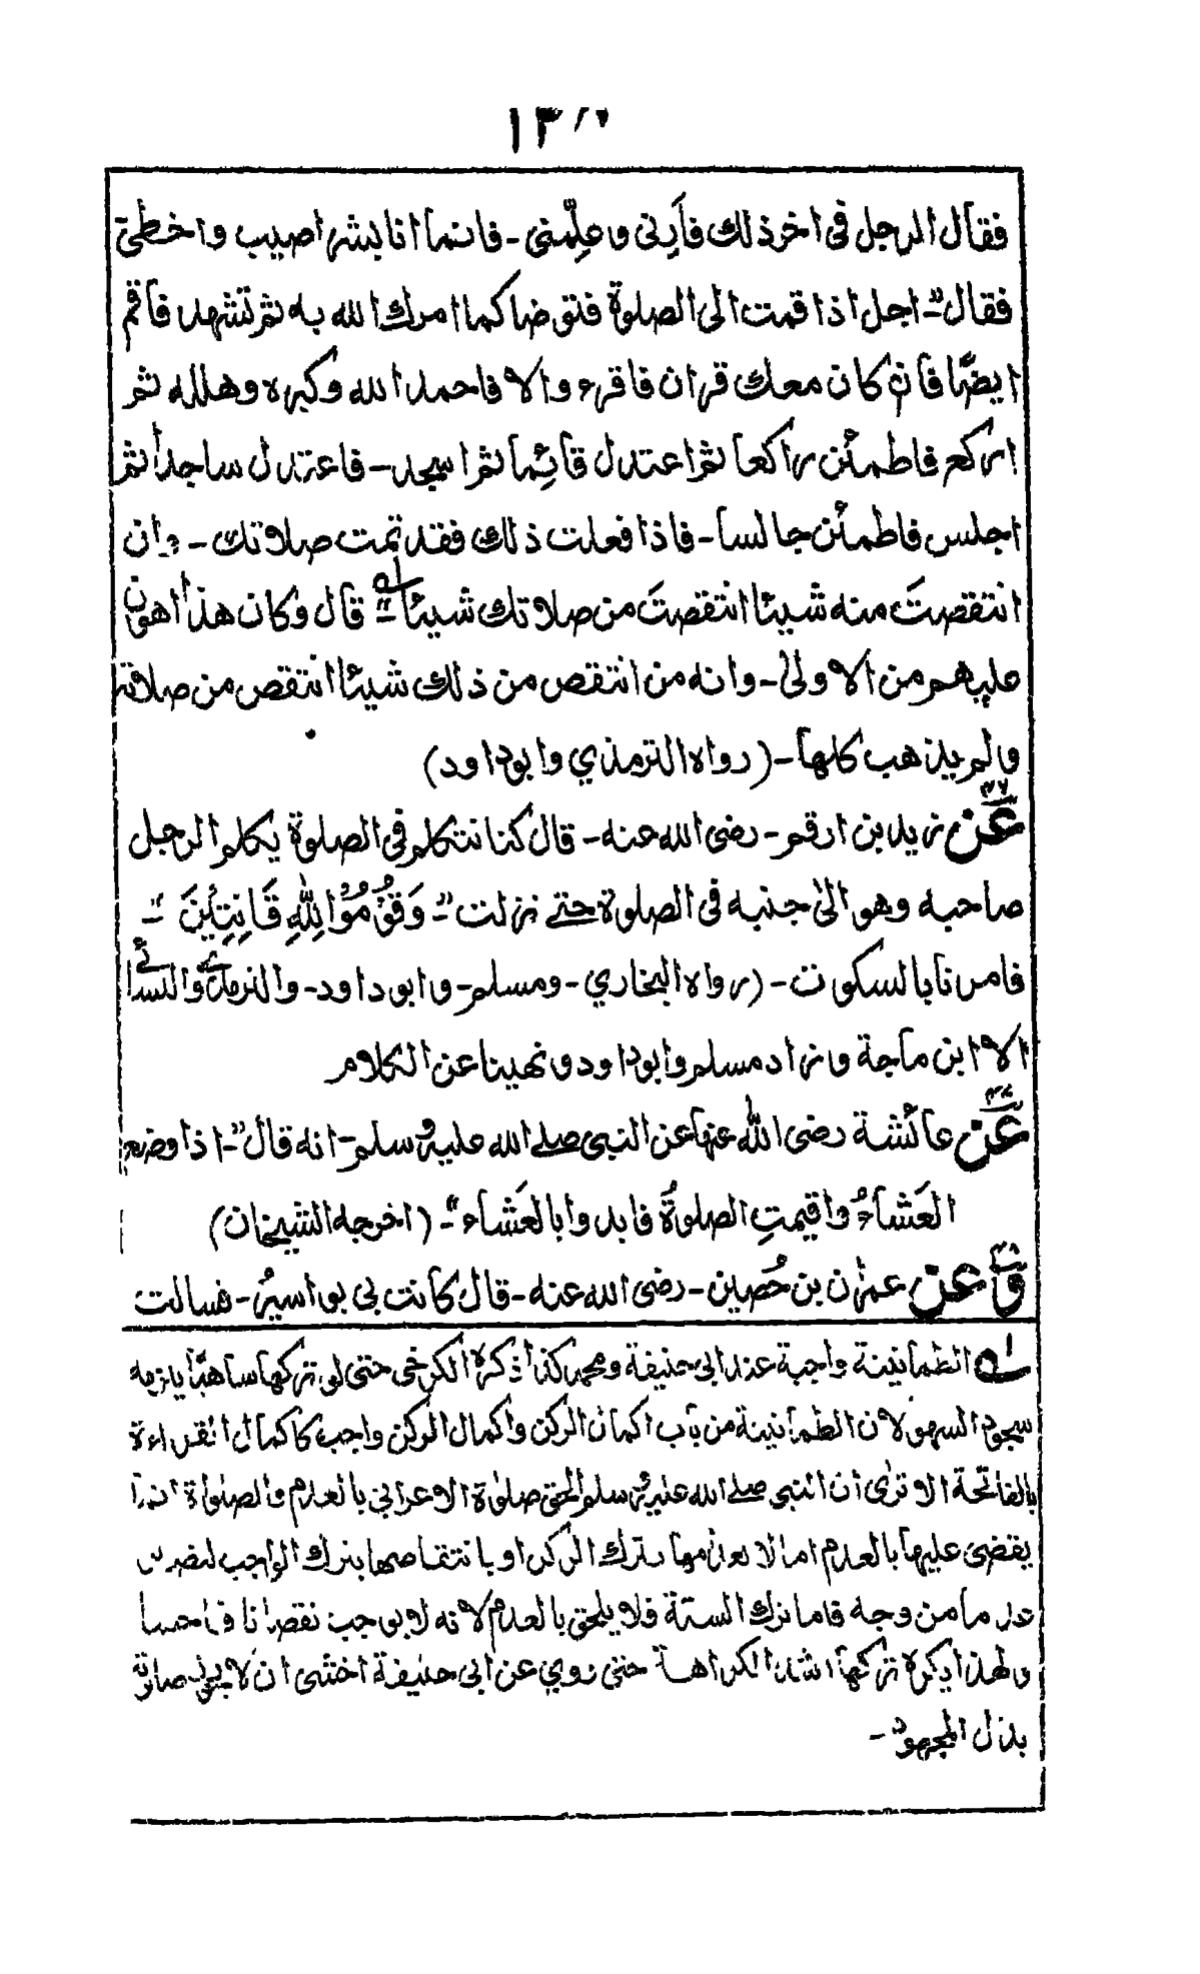 فقال الرجل فی اخر ذلك فأرنی وعلِّمنی - فانما انا بشر اصیب واخطئ
فقال ”- اجل اذا قمت الی الصلوة فتوضا کما امرك الله به ثم تشهد فاقم
ایضًا فان کان معك قران فاقرء والا فاحمد الله وکبره وهلله ثم
ارکع فاطمئن راکعا ثم اعتدل قائما ثم اسجد - فاعتدل ساجدا ثم
اجلس فاطمئن جالسا - فاذا فعلت ذلك فقد تمت صلاتك - وان
انتقصتَ منه شیئا انتقصتَ من صلاتك شیئا ”- قال وکان هذا اهون
علیهم من الاولی - وانه من انتقص من ذلك شیئا انتقص من صلاته
ولم یذهب کلها - (رواه الترمذي وابوداود)
۳۶ عَن زید بن ارقم - رضی الله عنه - قال کنا نتکلم فی الصلوة یکلم الرجل
صاحبه وهو الیٰ جنبه فی الصلوة حتے نزلت ”- وَقُوْمُوْا لِلّٰهِ قَانِتِیْنَ “-
فامرنا بالسکوت - (رواه البخاري - ومسلم - وابوداود - والترمذي والنسائے
الا ابن ماجة وزاد مسلم وابوداود ونهینا عن الکلام
۳۷ عَن عائشة رضی الله عنها عن النبی صلے الله علیه وسلم - انه قال ”- اذا وضع
العَشآءُ واقیمتِ الصلوةُ فابدوا بالعَشاء “- (اخرجه الشیخان)
۳۸ وَعن عمرٰن بن حُصین - رضی الله عنه - قال کانت بی بواسیرُ - فسالت
له الطمانینة واجبة عند ابی حنیفة ومحمد کذا ذکره الکرخی حتی لو ترکها ساهیًا یلزمه
سجود السهو لان الطمانینة من باب اکمال الرکن واکمال الرکن واجب کاکمال القراءة
بالفاتحة الا تری ان النبی صلے الله علیه وسلم الحق صلوٰة الاعرابی بالعدم والصلوٰة انما
یقضی علیها بالعدم اما لانعدامها بترك الرکن او بانتقاصها بترك الواجب لتصیر
عدما من وجه فاما ترك السنة فلا یلحق بالعدم لانه لا یوجب نقصانا فاحشا
ولهذا یکره ترکها اشد الکراهة حتی روي عن ابی حنیفة اخشی ان لا یجوز صلوته
بذل المجهود -